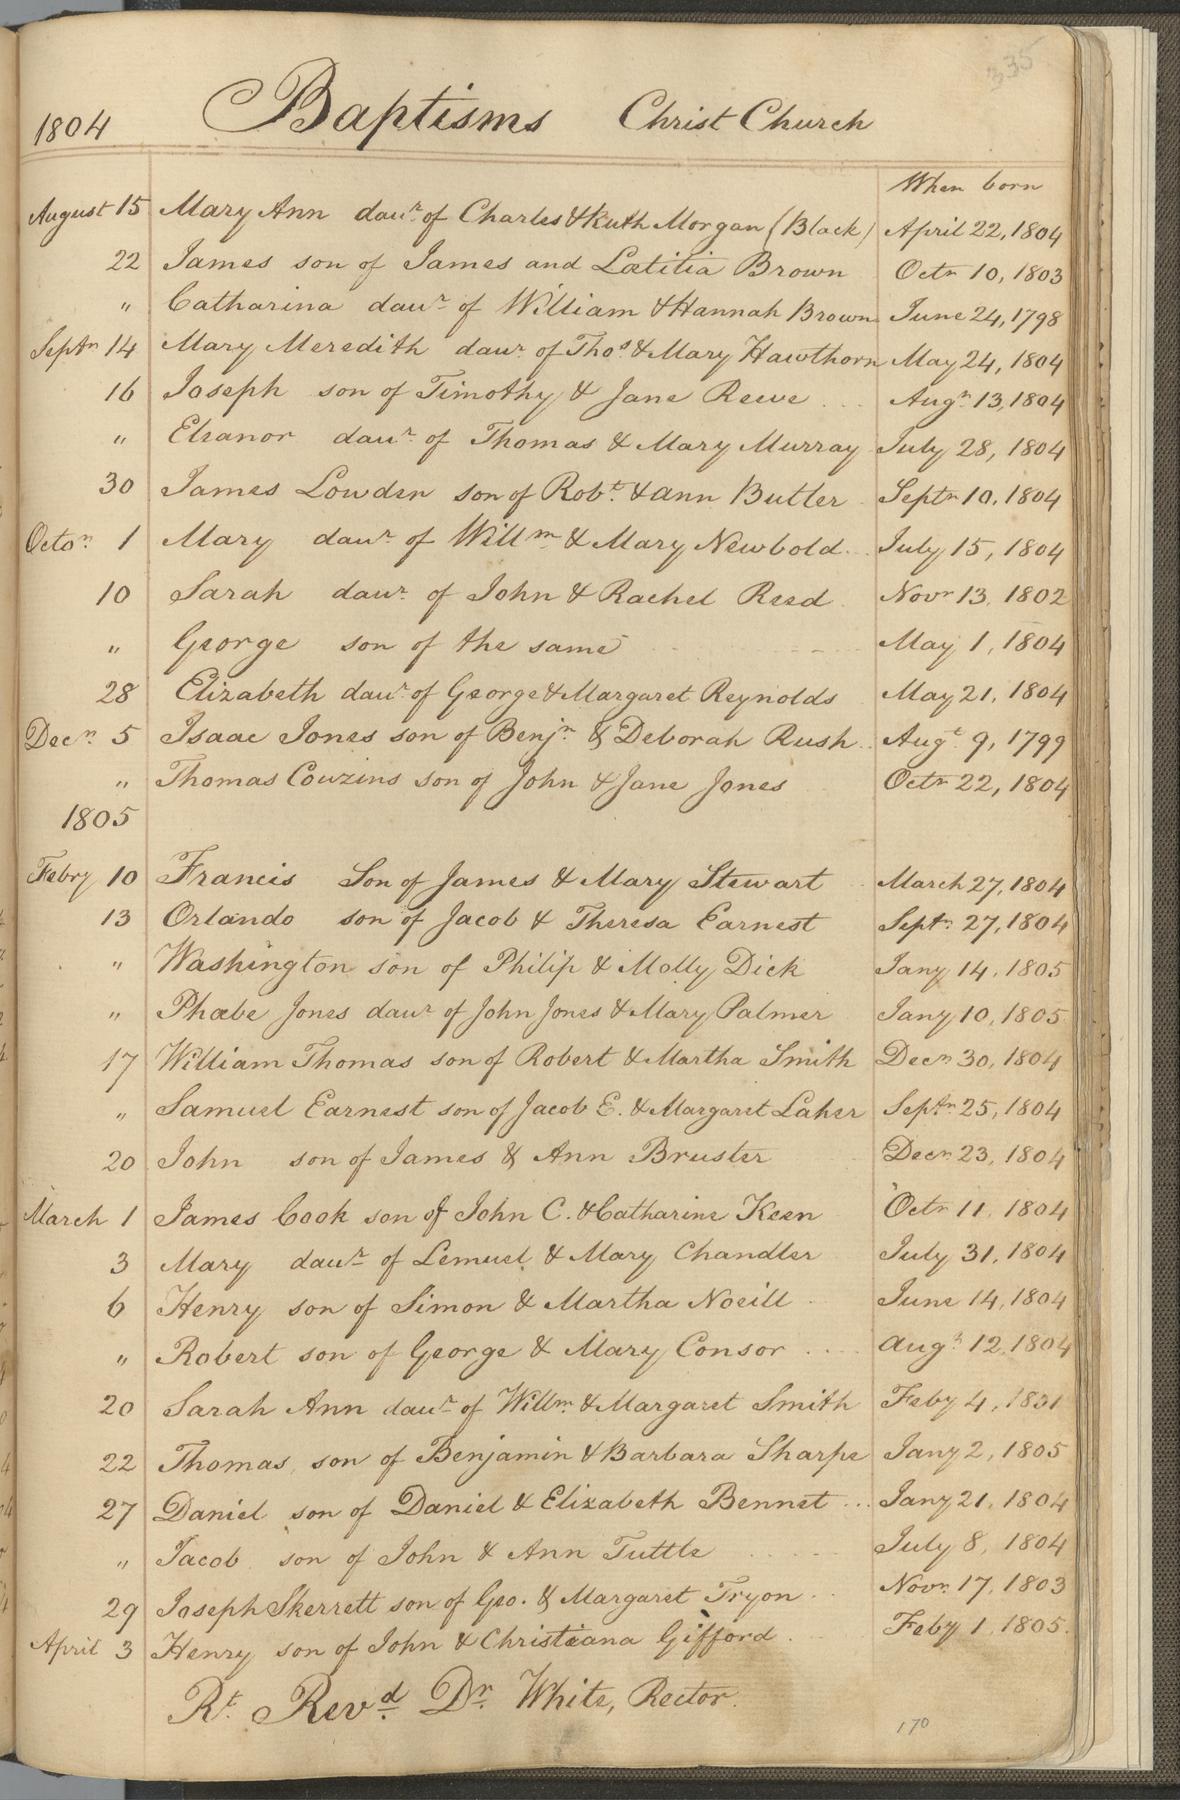 335
1804 Baptisms Christ Church
When born
August 15 Mary Ann daur. of Charles & Ruth Morgan (Black) April 22, 1804
22 James son of James and Lætitia Brown Octr 10, 1803
" Catharina daur. of William & Hannah Brown June 24, 1798
Septr 14 Mary Meredith daur. of Thos. & Mary Hawthorn May 24, 1804
16 Joseph son of Timothy & Jane Reeve Augt. 13, 1804
" Eleanor daur. of Thomas & Mary Murray July 28, 1804
30 James Lowden son of Robt. & Ann Butler Septr 10, 1804
Octor. 1 Mary daur. of Willm. & Mary Newbold July 15, 1804
10 Sarah daur. of John & Rachel Reed Novr 13, 1802
" George son of the same May 1, 1804
28 Elizabeth daur. of George & Margaret Reynolds May 21, 1804
Decr. 5 Isaac Jones son of Benjn. & Deborah Rush Augt. 9, 1799
" Thomas Couzins son of John & Jane Jones Octr 22, 1804
1805
Febry 10 Francis Son of James & Mary Stewart March 27, 1804
13 Orlando son of Jacob & Theresa Earnest Septr. 27, 1804
" Washington son of Philip & Molly Dick Jany 14, 1805
" Phœbe Jones daur. of John Jones & Mary Palmer Jany 10, 1805
17 William Thomas son of Robert & Martha Smith Decr. 30, 1804
" Samuel Earnest son of Jacob E. & Margaret Laher Septr. 25, 1804
20 John son of James & Ann Bruster Decr. 23, 1804
March 1 James Cook son of John C. & Catharine Keen Octr 11, 1804
3 Mary daur. of Lemuel & Mary Chandler July 31, 1804
6 Henry son of Simon & Martha Noeill June 14, 1804
" Robert son of George & Mary Consor Augt. 12, 1804
20 Sarah Ann daur. of Willm. & Margaret Smith Feby 4,
22 Thomas son of Benjamin & Barbara Sharpe Jany 2, 1805
27 Daniel son of Daniel & Elizabeth Bennet Jany 21, 1804
" Jacob son of John & Ann Tuttle July 8, 1804
29 Joseph Skerrett son of Geo. & Margaret Tryon Novr. 17, 1803
April 3 Henry son of John & Christiana Gifford Feby 1, 1805.
Rt. Revd. Dr. White, Rector.
170